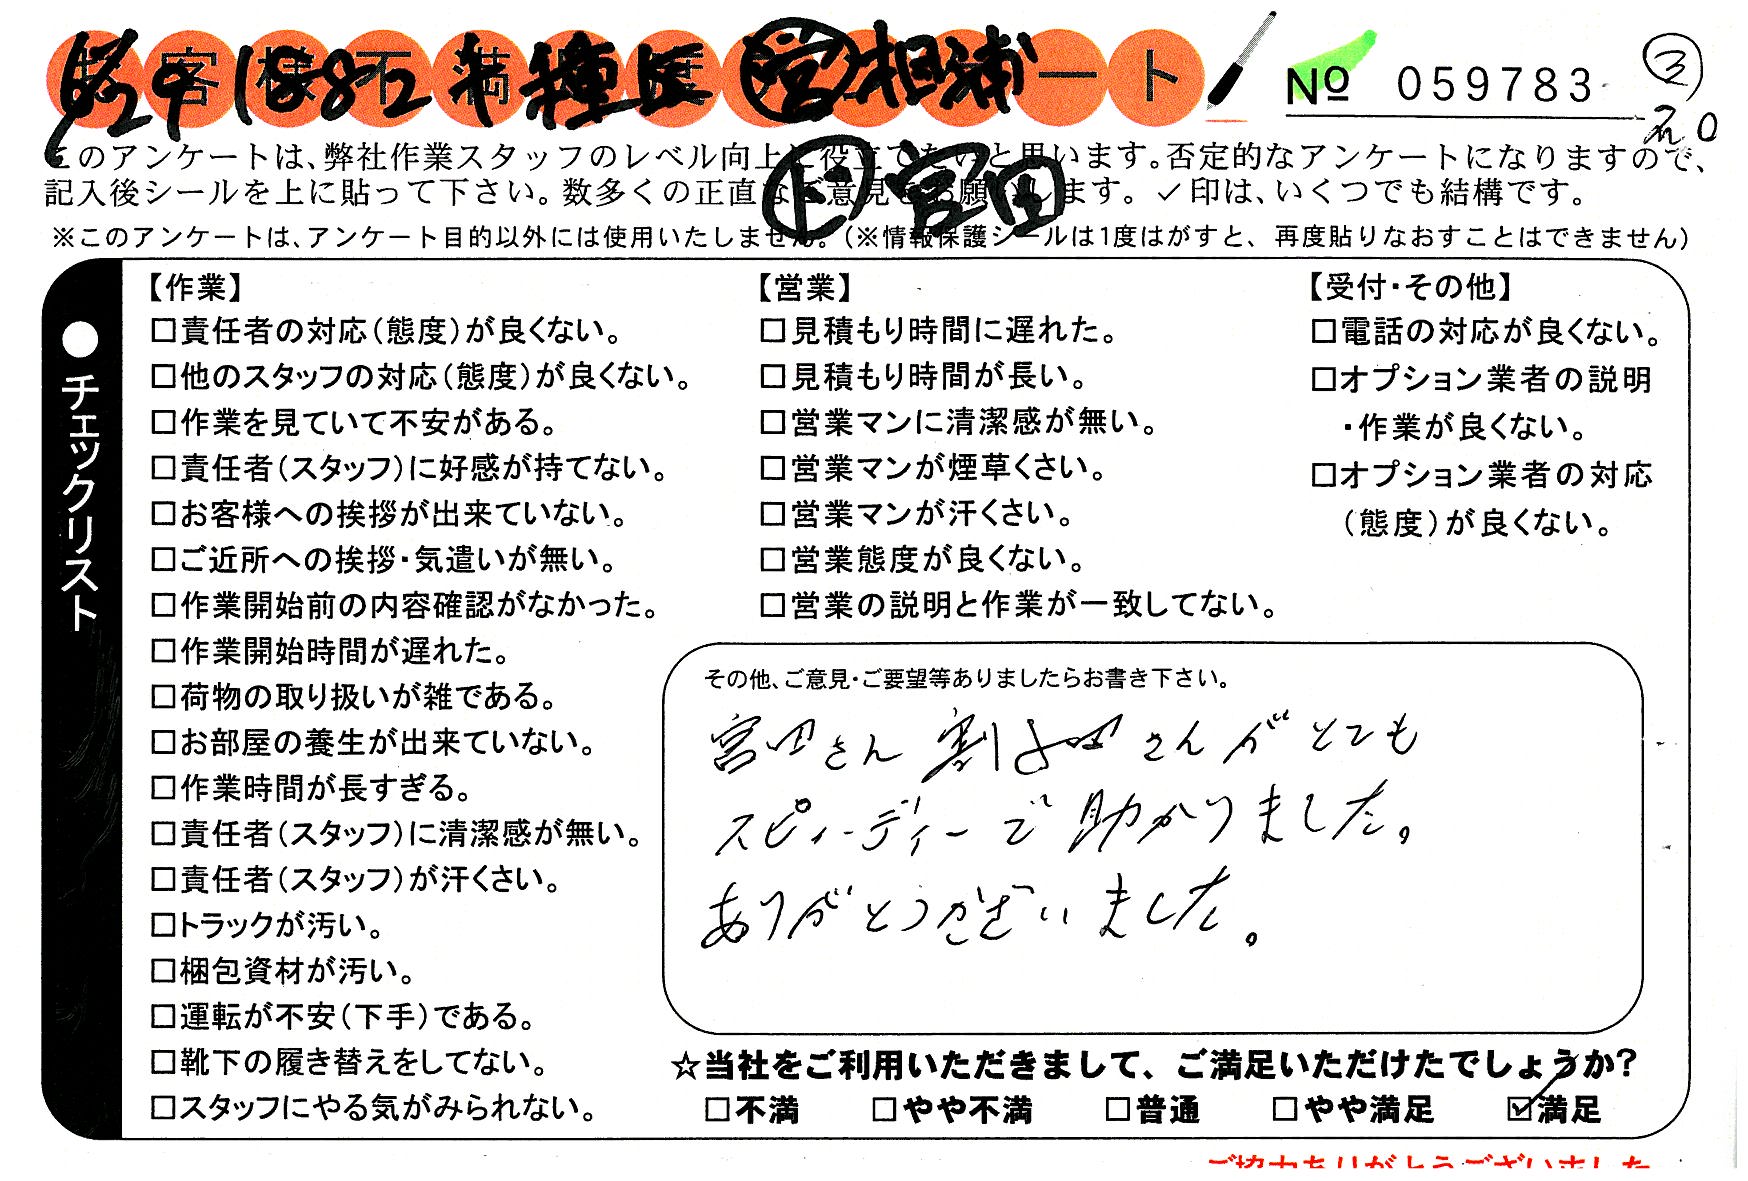 お客様不満足度アンケート
6/29 1882 千種区 営 相浦
№ 059783
③
このアンケートは、弊社作業スタッフのレベル向上に役立てたいと思います。否定的なアンケートになりますので、
記入後シールを上に貼って下さい。数多くの正直なご意見をお願いします。✓印は、いくつでも結構です。
宮田
※このアンケートは、アンケート目的以外には使用いたしません。（※情報保護シールは1度はがすと、再度貼りなおすことはできません）
●チェックリスト
【作業】
□責任者の対応（態度）が良くない。
□他のスタッフの対応（態度）が良くない。
□作業を見ていて不安がある。
□責任者（スタッフ）に好感が持てない。
□お客様への挨拶が出来ていない。
□ご近所への挨拶・気遣いが無い。
□作業開始前の内容確認がなかった。
□作業開始時間が遅れた。
□荷物の取り扱いが雑である。
□お部屋の養生が出来ていない。
□作業時間が長すぎる。
□責任者（スタッフ）に清潔感が無い。
□責任者（スタッフ）が汗くさい。
□トラックが汚い。
□梱包資材が汚い。
□運転が不安（下手）である。
□靴下の履き替えをしてない。
□スタッフにやる気がみられない。
【営業】
□見積もり時間に遅れた。
□見積もり時間が長い。
□営業マンに清潔感が無い。
□営業マンが煙草くさい。
□営業マンが汗くさい。
□営業態度が良くない。
□営業の説明と作業が一致してない。
【受付・その他】
□電話の対応が良くない。
□オプション業者の説明
・作業が良くない。
□オプション業者の対応
（態度）が良くない。
その他、ご意見・ご要望等ありましたらお書き下さい。
宮田さん 割田さんがとても
スピィーディーで助かりました。
ありがとうございました。
☆当社をご利用いただきまして、ご満足いただけたでしょうか？
□不満 □やや不満 □普通 □やや満足 ☑満足
ご協力ありがとうございました